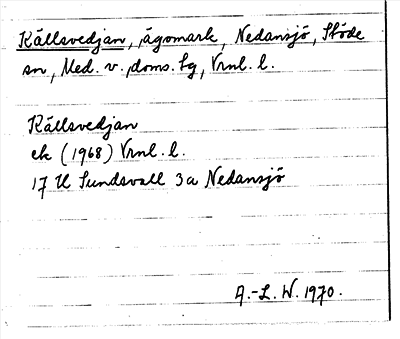 Källsvedjan, ägomark, Nedansjö, Stöde
sn, Med. v. doms. lg, Vrnl. l.
Källsvedjan
ek (1968) Vrnl. l.
17 H Sundsvall 3a Nedansjö
A.-L. W. 1970.